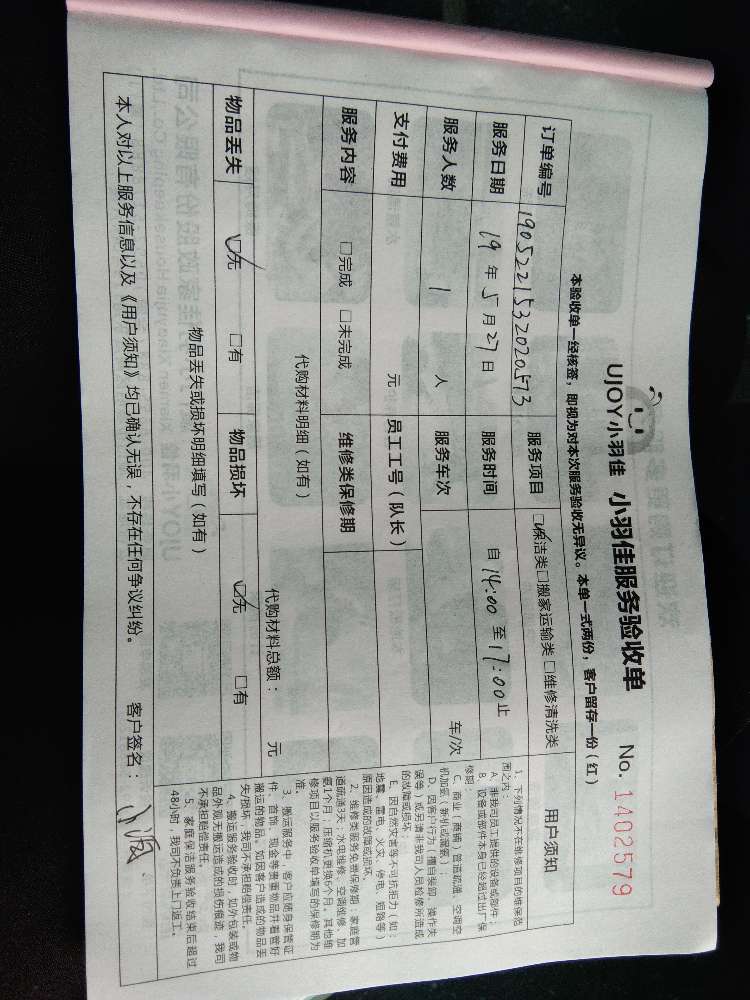 UJOY小羽佳 小羽佳服务验收单 No. 1402579
本验收单一经核签，即视为对本次服务验收无异议。本单一式两份，客户留存一份（红）
订单编号 1905221532020573 服务项目 ☑保洁类□搬家运输类□维修清洗类 用户须知
服务日期 19 年 5 月 27 日 服务时间 自 14:00 至 17:00 止
服务人数 1 人 服务车次 车/次
支付费用 元 员工工号（队长）
服务内容 □完成 □未完成 维修类保修期
代购材料明细（如有）
代购材料总额： 元
物品丢失 ☑无 □有 物品损坏 ☑无 □有
物品丢失或损坏明细填写（如有）
本人对以上服务信息以及《用户须知》均已确认无误，不存在任何争议纠纷。 客户签名：
1、下列情况不在维修项目的维保范
围之内：
A、非我司员工提供的设备或部件；
B、设备或部件本身已经超过出厂保
修期；
C、商业（商铺）管道疏通、空调空
机加氟（新机或漏氟）；
D、因客户行为（擅自接管、操作失
误等）或另请非我司人员检修所造成
的故障或损坏；
E、因自然灾害等不可抗拒力（如：
地震、雷电、火灾、停电、短路等）
原因造成的故障或损坏。
2、维修类服务免费保修期：家庭管
道疏通3天；水电维修、空调维修、加
氨1个月；压缩机更换6个月。其他维
修项目以服务验收单填写的保修期为
准。
3、搬运服务中，客户应随身保管证
件、首饰、现金等贵重物品并看管好
搬运的物品。如因客户造成的物品丢
失/损坏，我司不承担赔偿责任。
4、搬运服务验收时，如外包装或物
品外观无搬运造成的损伤痕迹，我司
不承担赔偿责任。
5、家庭保洁服务验收结束后超过
48小时，我司不负责上门返工。